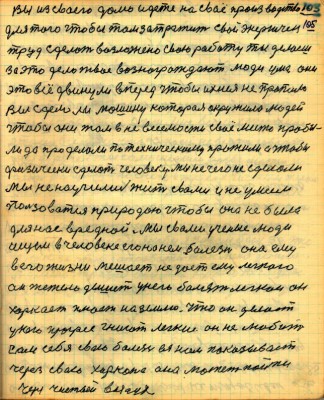 103
Вы из своего дома идете на своё производство
105
для того чтобы там затратить свой энергичн
труд сделать возложено свою работу ты делаеш
за это деловые вознограждают люди ума они
это всё двинули вперед чтобы и
Вы сделали машину которая окружила людей
чтобы они там в не весности своё место пробы-
ли да проделали по техническому прожили а чтобы
физически сделать человеку мы нечего не сделали
Мы не научились жить сами и не умеем
ползоватся природою чтобы она не была
для нас вредной. Мы сваи ученые люди
ищем в человеке болезь она ему
в его жизни мешает не дает ему легкого
он жетело дышит у него болезь легкая он
харкает плюет на землю. Что он делает
у него процес гниют легкие он не любит
сам себя свою болезь он нам показывает
через свою харкоту она может пойти
через чистый воздух